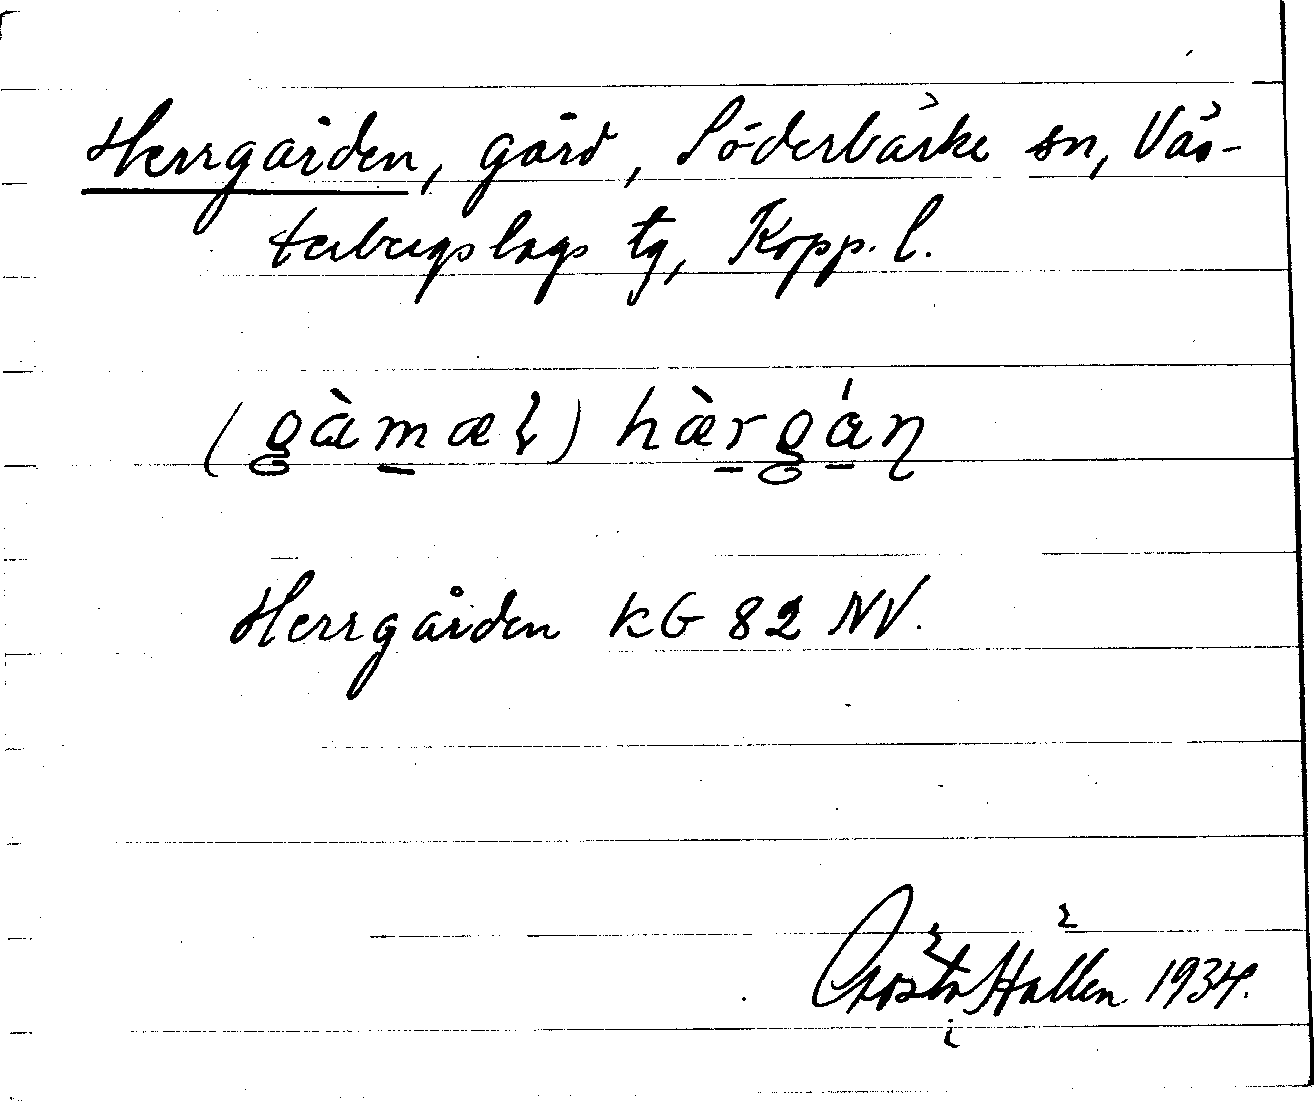 Herrgården, gård, Söderbärke sn, Väs-
terbergslags tg, Kopp. l.
(gàmæł) hàrgán̨
Herrgården KG 82 NV.
Gösta Hallén 1934.